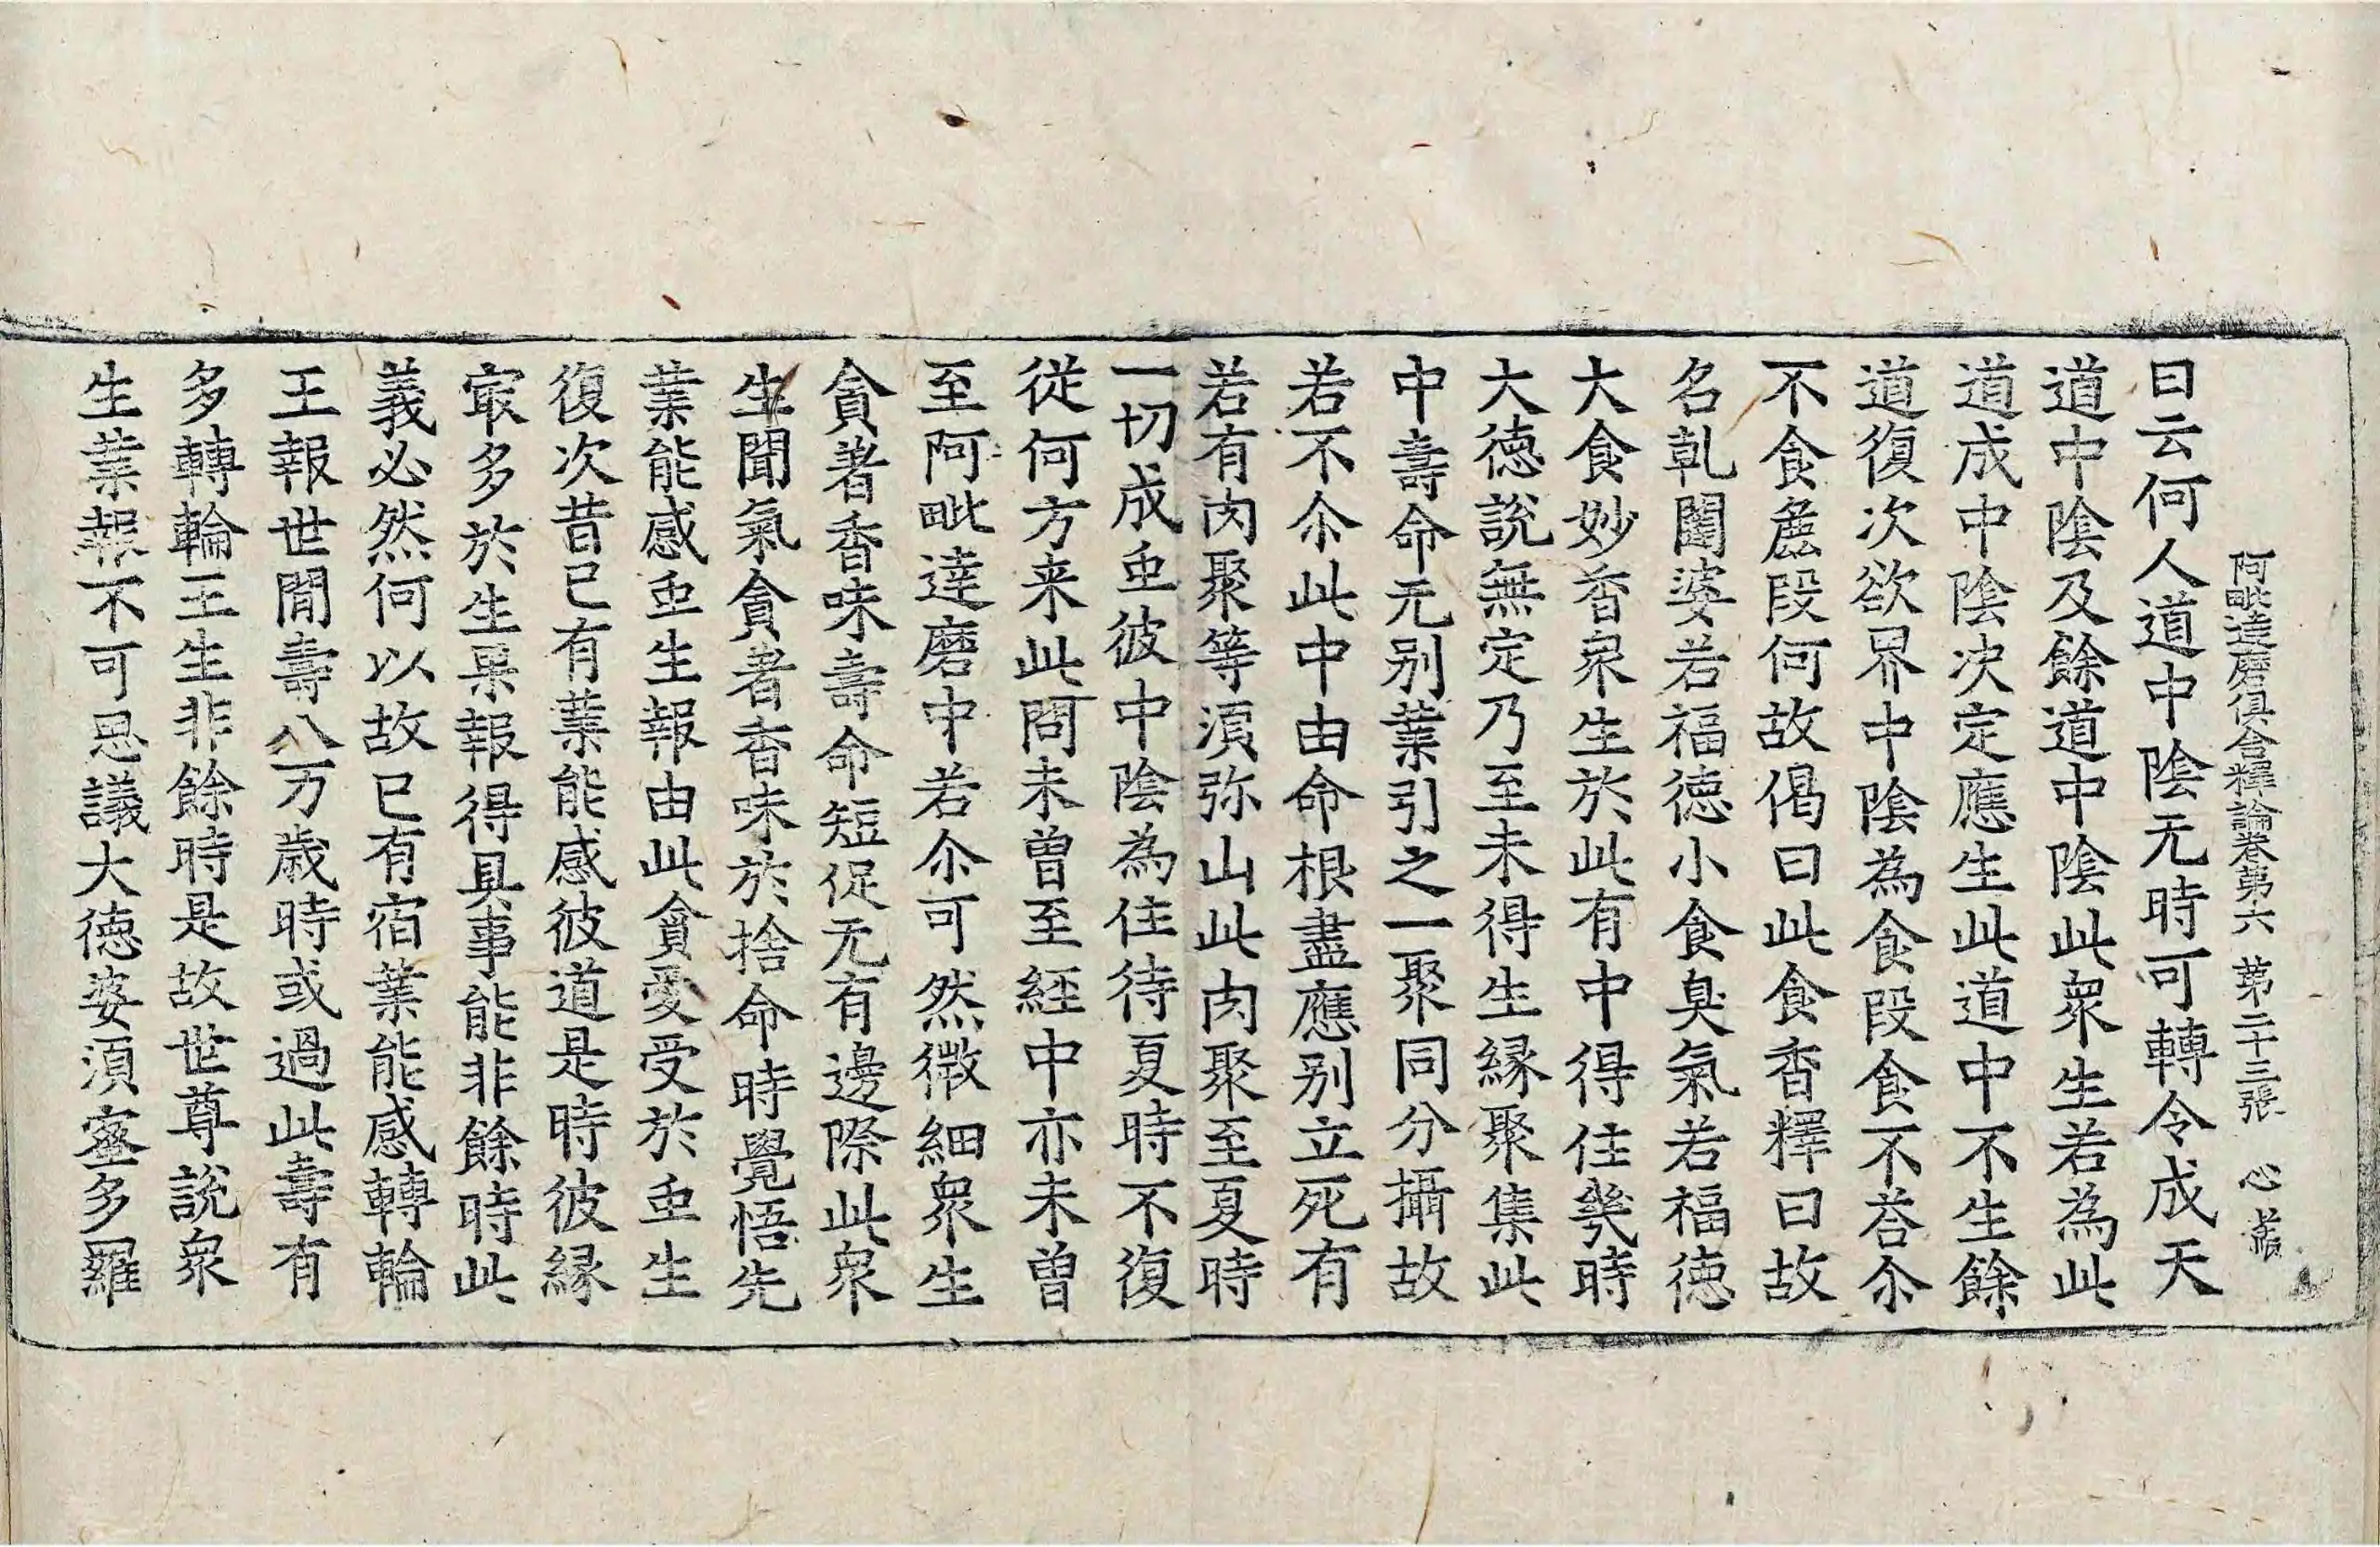 阿毗達磨俱舍釋論卷第六　第二十三張　心
曰云何人道中陰无時可轉令成天
道中陰及餘道中陰此衆生若為此
道成中陰决定應生此道中不生餘
道復次欲界中陰為食段食不荅尒
不食麁段何故偈曰此食香釋曰故
名乹闥婆若福德小食臭氣若福德
大食妙香衆生於此有中得住幾時
大德說無定乃至未得生緣聚集此
中壽命无别業引之一聚同分攝故
若不尒此中由命根盡應别立死有
若有肉聚等湏弥山此肉聚至夏時
一切成虫彼中陰為住待夏時不復
從何方来此問未曽至經中亦未曽
至阿毗達磨中若尒可然微細衆生
貪著香味壽命短促无有邊際此衆
生聞氣貪著香味於捨命時覺悟先
業能感虫生報由此貪愛受於虫生
復次昔已有業能感彼道是時彼緣
㝡多於生果報得具事能非餘時此
義必然何以故已有宿業能感轉輪
王報世間壽八万歲時或過此壽有
多轉輪王生非餘時是故世尊說衆
生業報不可思議大德婆湏蜜多羅